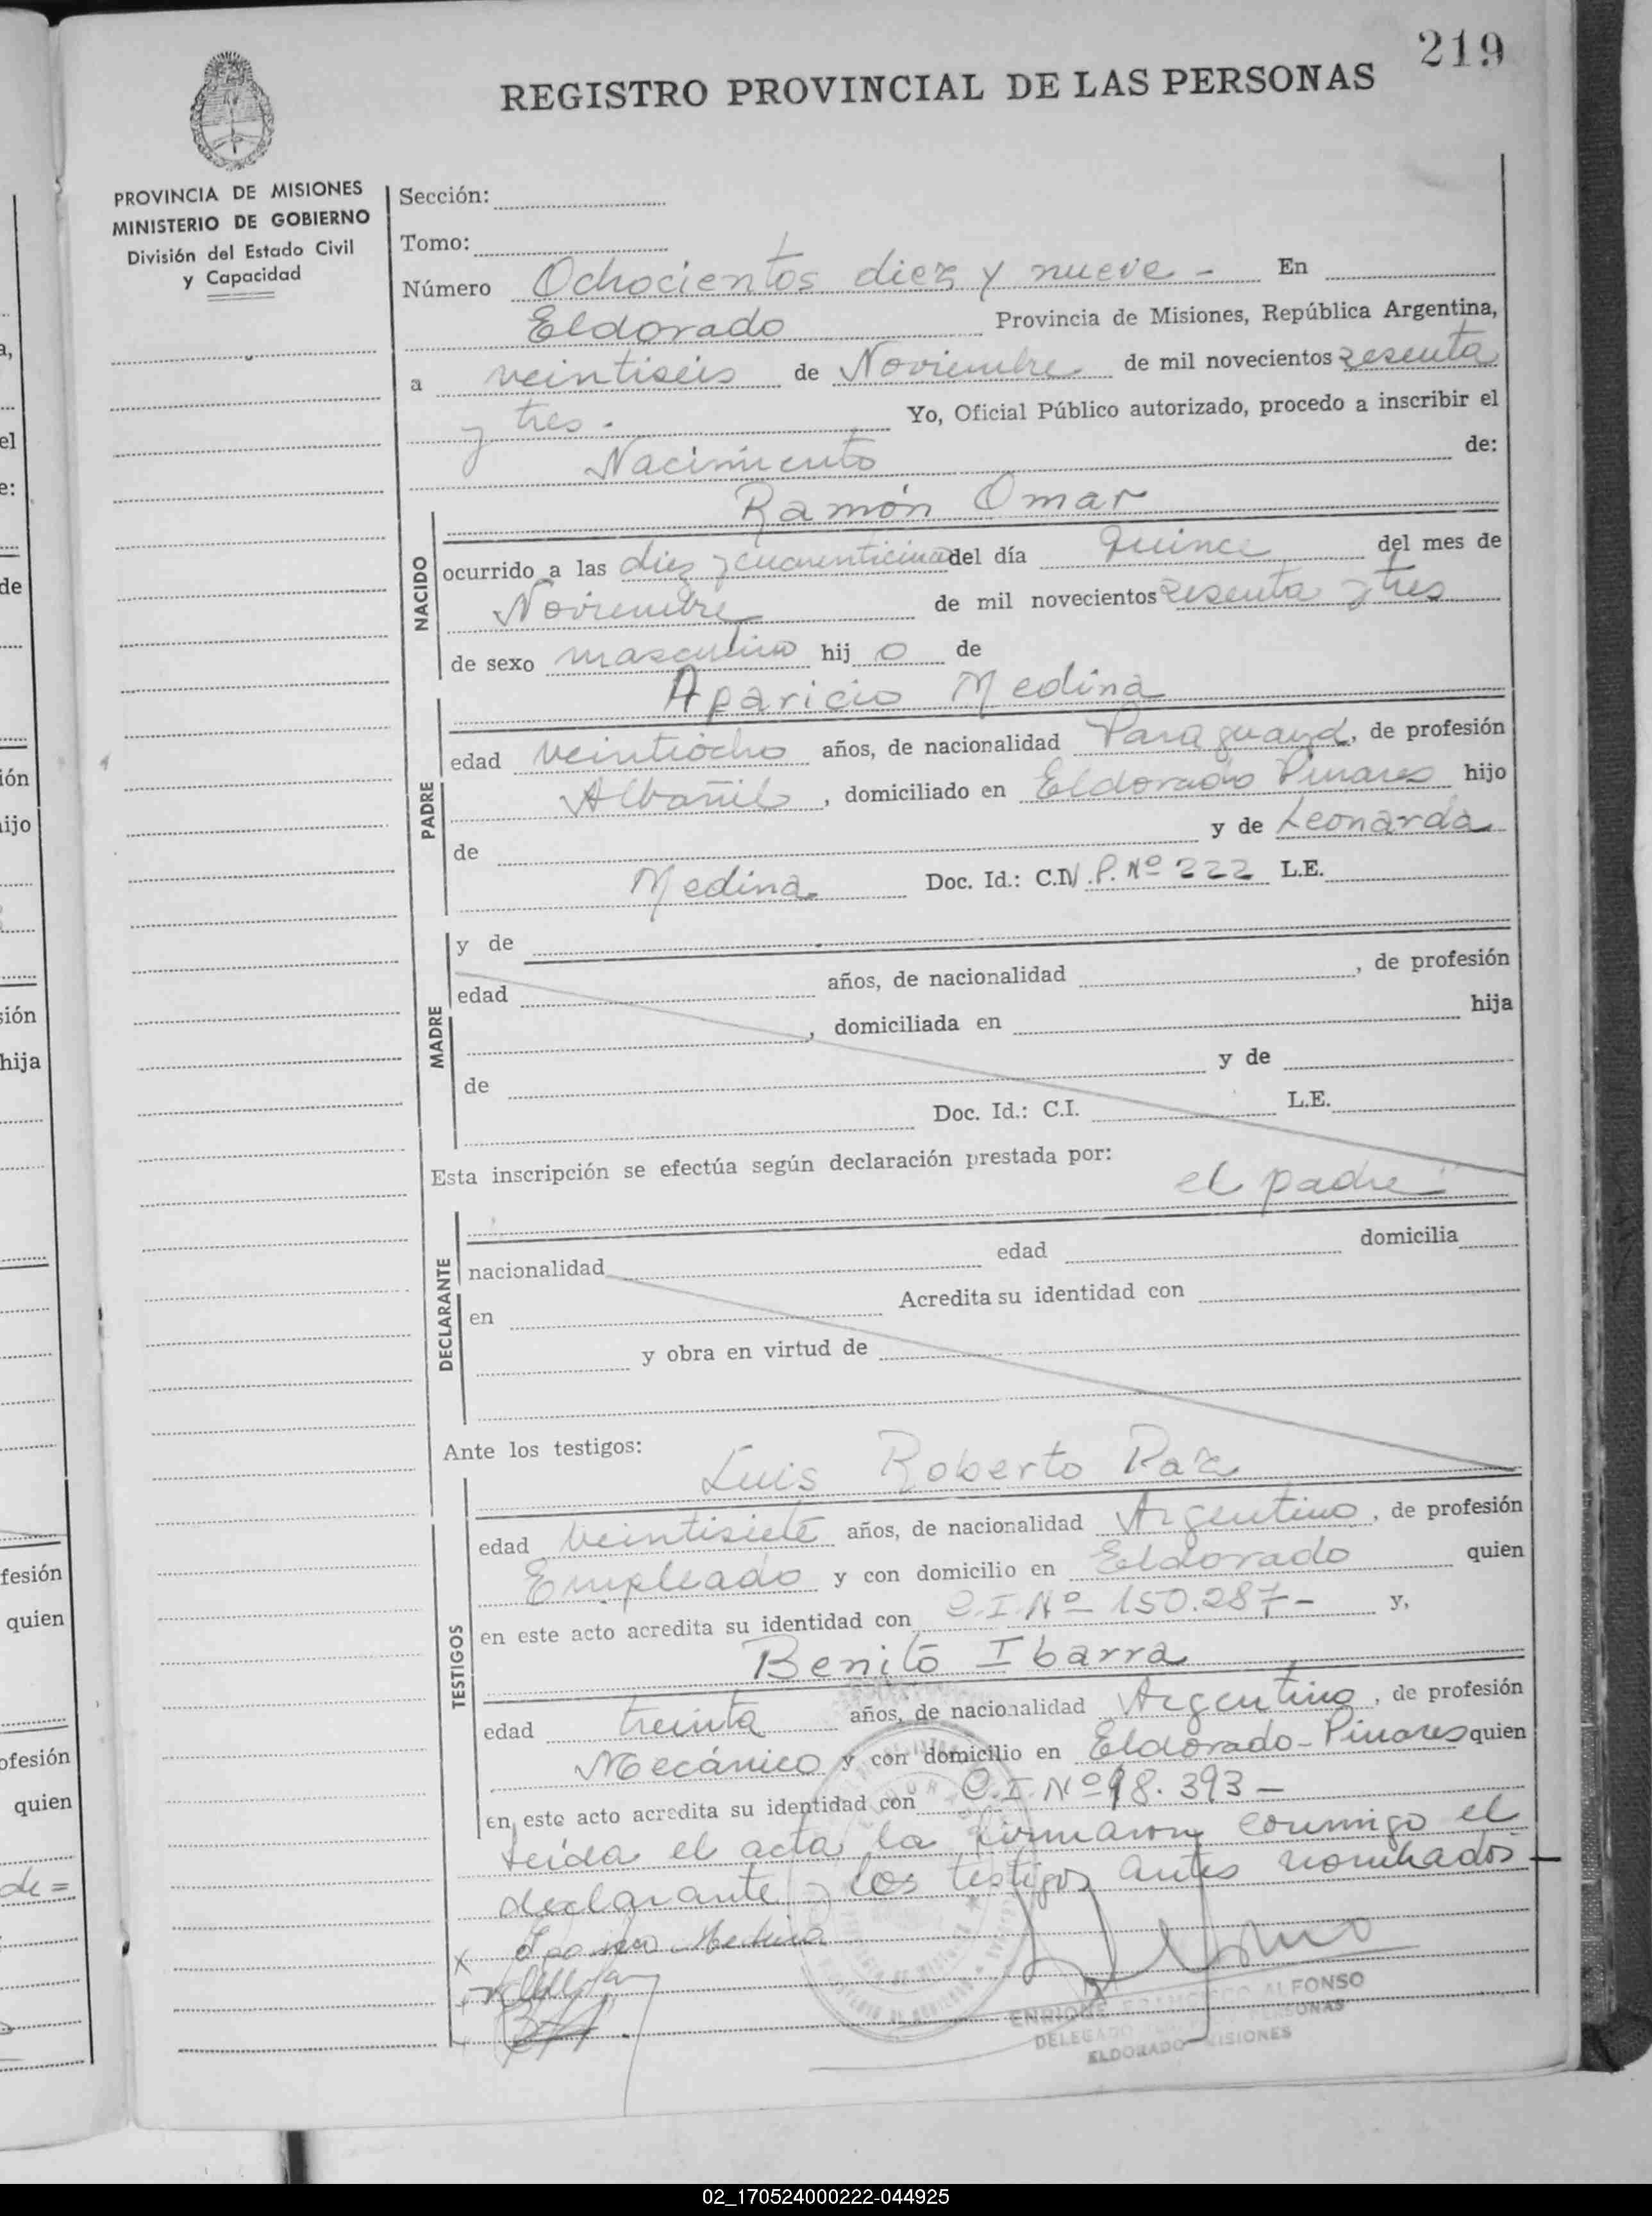 219
REGISTRO PROVINCIAL DE LAS PERSONAS
PROVINCIA DE MISIONES
MINISTERIO DE GOBIERNO
División del Estado Civil
y Capacidad
Sección:
Tomo:
Número Ochocientos diez y nueve - En
Eldorado Provincia de Misiones, República Argentina,
a veintiseis de Noviembre de mil novecientos sesenta
y tres. Yo, Oficial Público autorizado, procedo a inscribir el
Nacimiento de:
NACIDO
Ramón Omar
ocurrido a las diez y cuarenticinco del día quince del mes de
Noviembre de mil novecientos sesenta y tres
de sexo masculino hij o de
PADRE
Aparicio Medina
edad veintiocho años, de nacionalidad Paraguaya, de profesión
Albañil, domiciliado en Eldorado Pinares hijo
de y de Leonarda
Medina. Doc. Id.: C.I. P. Nº 222 L.E.
MADRE
y de
edad años, de nacionalidad , de profesión
, domiciliada en hija
de y de
Doc. Id.: C.I. L.E.
Esta inscripción se efectúa según declaración prestada por:
el padre
DECLARANTE
nacionalidad edad domicilia
en Acredita su identidad con
y obra en virtud de
Ante los testigos:
TESTIGOS
Luis Roberto
edad veintisiete años, de nacionalidad Argentino, de profesión
Empleado y con domicilio en Eldorado quien
en este acto acredita su identidad con C.I. Nº 150.287- y,
Benito Ibarra
edad treinta años, de nacionalidad Argentino, de profesión
Mecánico y con domicilio en Eldorado-Pinares quien
en este acto acredita su identidad con C.I. Nº 98.393-
Leída el acta, la firmaron conmigo el
declarante y los testigos antes nombrados
X Medina
ENRIQUE FRANCISCO ALFONSO
DELEGADO PERSONAS
ELDORADO MISIONES
a,
el
e:
de
ión
ijo
sión
hija
fesión
quien
ofesión
quien
de =
02_170524000222-044925